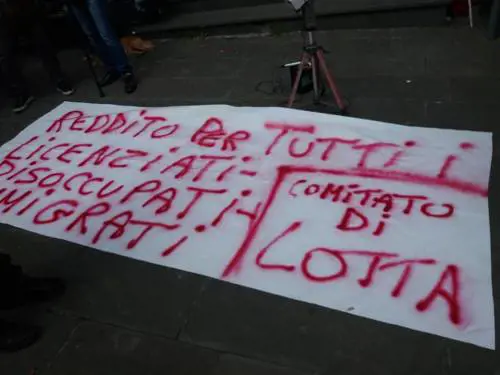 REDDITO PER TUTTI i
LICENZIATI-
DISOCCUPATI-
IMIGRATI
COMITATO
Di
LOTTA